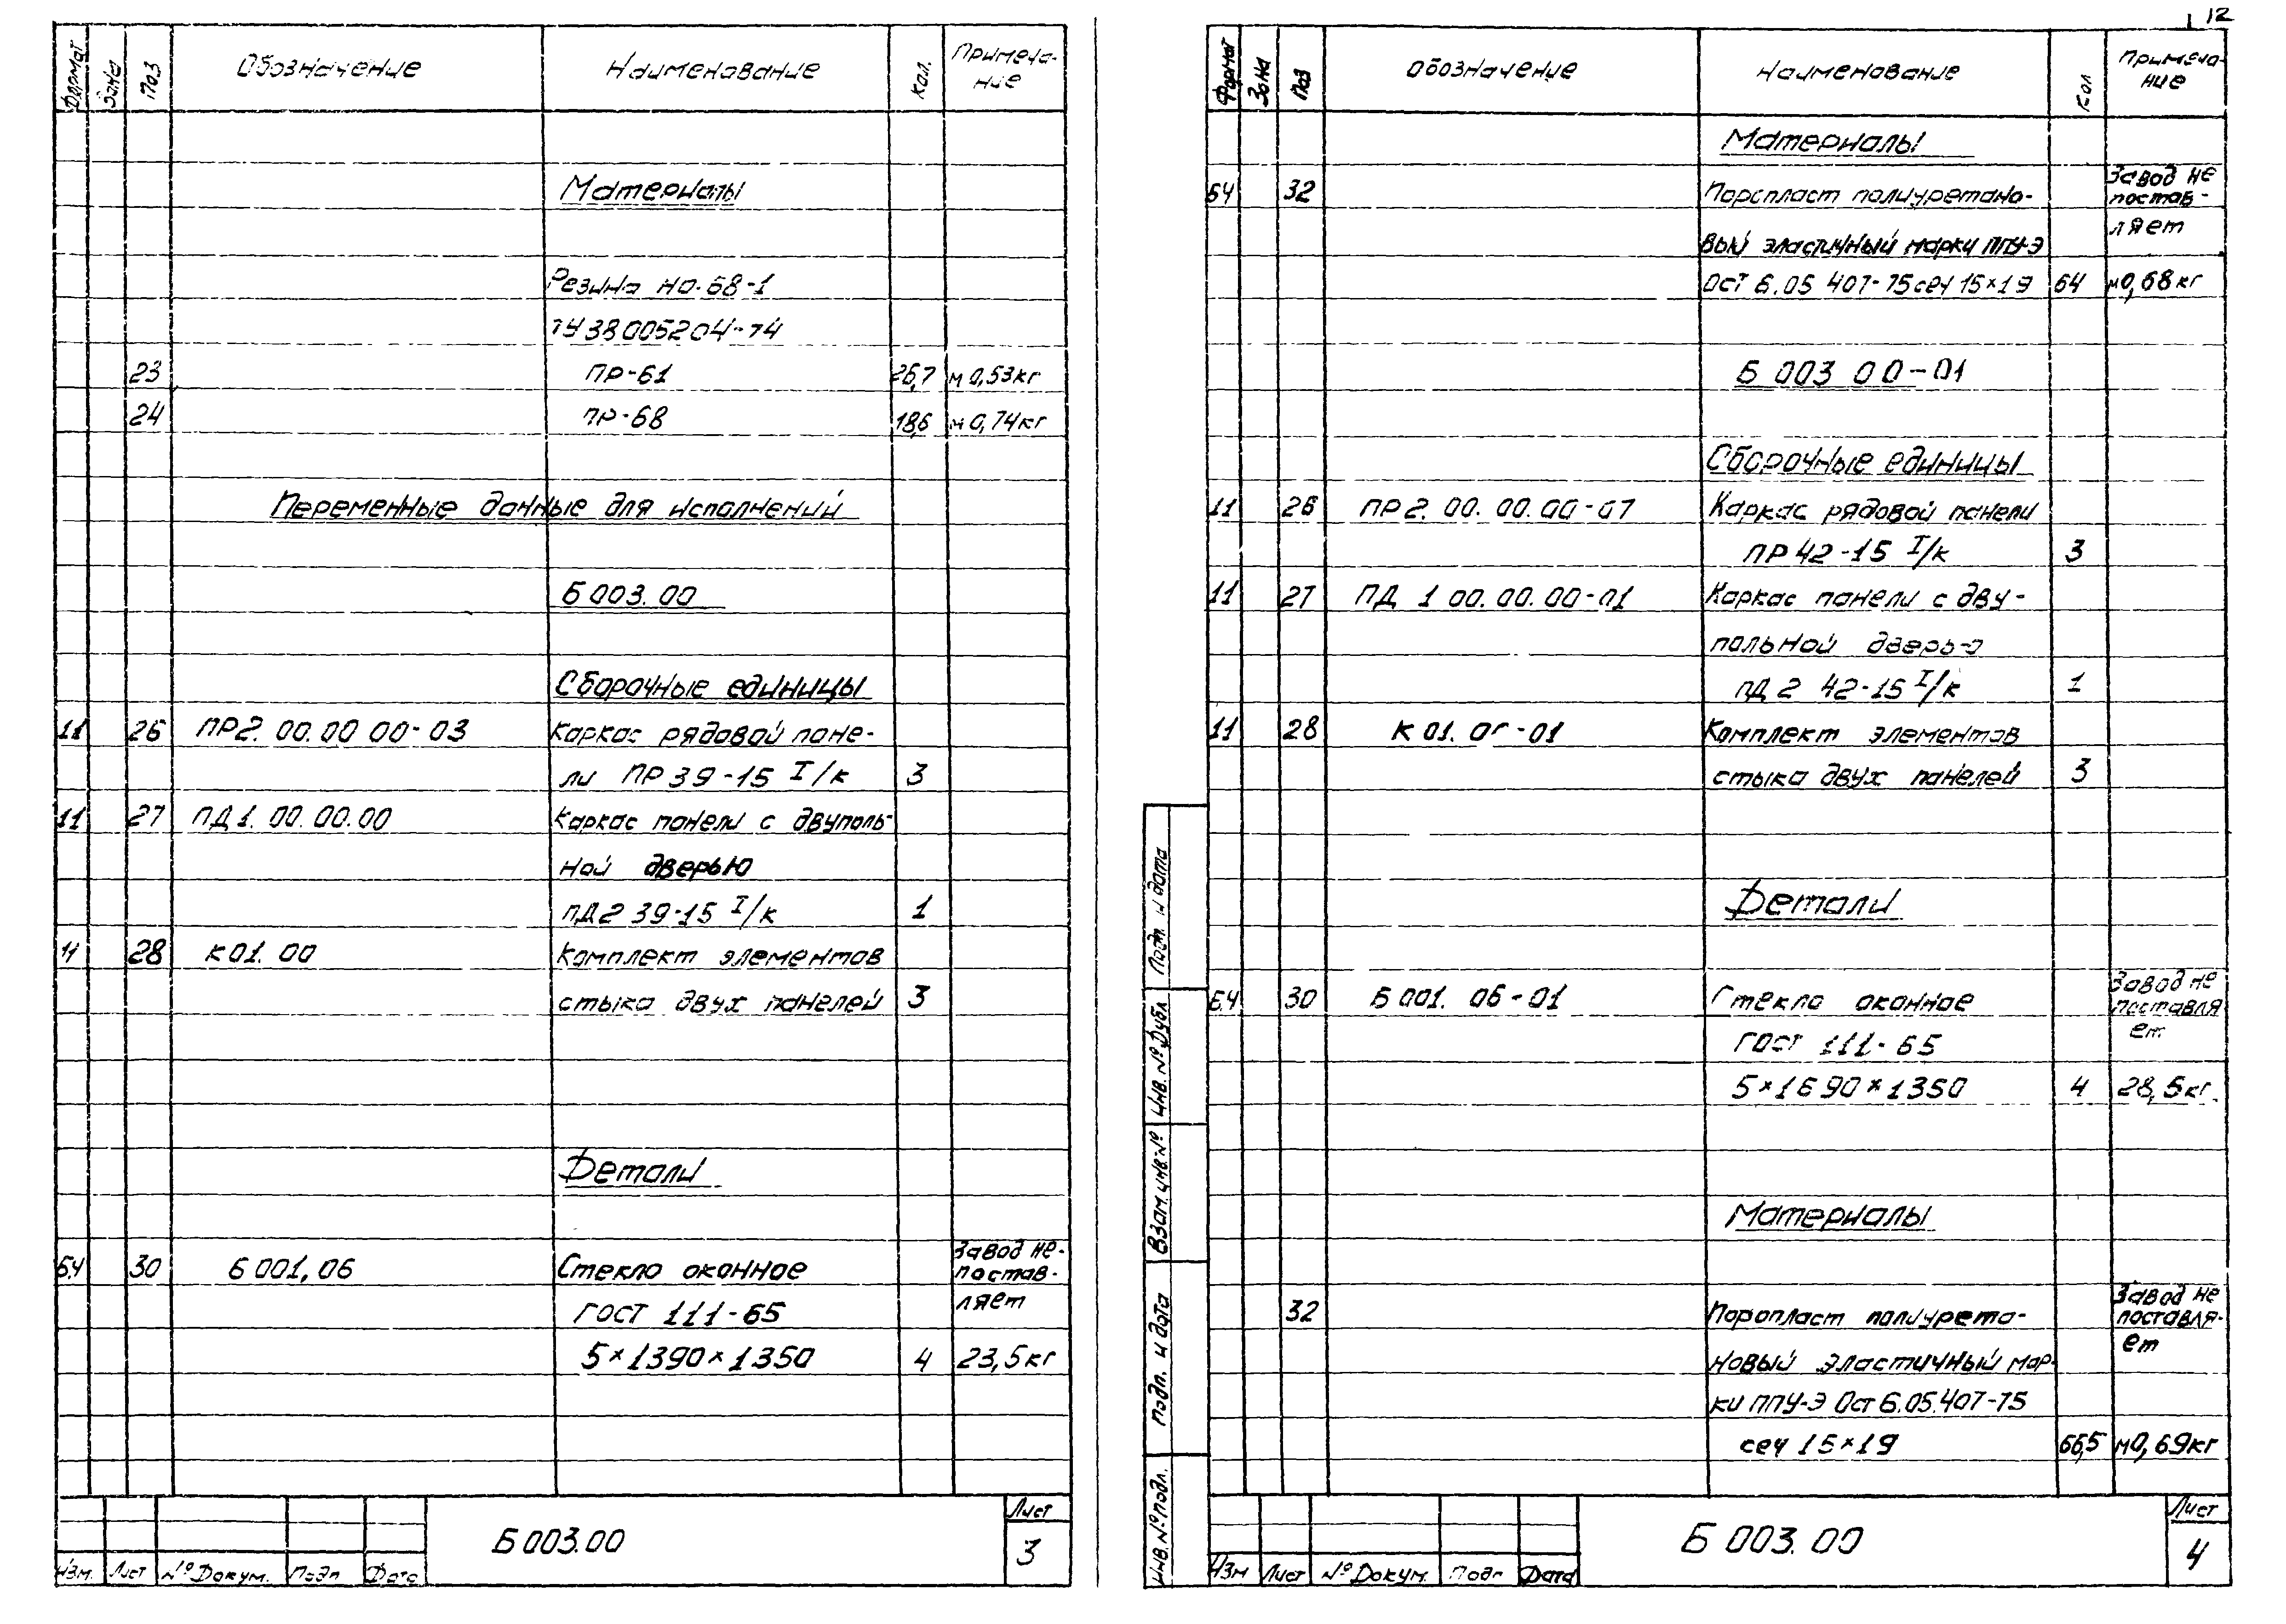 12
Формат Зона Поз Обозначение Наименование Кол. Примеча-
ние
Материалы
Резина НО-68-1
ТУ38005204-74
23 ПР-61 26,7 м 0,53кг
24 ПР-68 18,6 м 0,74кг
Переменные данные для исполнений
Б 003.00
Сборочные единицы
11 26 ПР2.00.00 00-03 Каркас рядовой пане-
ли ПР 39-15 I/к 3
11 27 ПД1.00.00.00 Каркас панели с двуполь-
ной дверью
ПД2 39-15 I/к 1
11 28 К01.00 Комплект элементов
стыка двух панелей 3
Детали
БЧ 30 Б 001,06 Стекло оконное Завод не-
постав-
ГОСТ 111-65 ляет
5×1390×1350 4 23,5кг
Б 003.00
Лист
3
Изм. Лист № Докум. Подп Дата
Формат Зона Поз Обозначение Наименование Кол Примеча-
ние
Материалы
БЧ 32 Поропласт полиуретано- Завод не
постав-
вый эластичный марки ППУ-Э ляет
Ост 6.05 407-75 сеч 15×19 64 м0,68кг
Б 003 00-01
Сборочные единицы
11 26 ПР2.00.00.00-07 Каркас рядовой панели
ПР42-15 I/к 3
11 27 ПД 1 00.00.00-01 Каркас панели с дву-
польной дверью
ПД2 42-15 I/к 1
11 28 К 01.00-01 Комплект элементов
стыка двух панелей 3
Детали
БЧ 30 Б 001. 06-01 Стекло оконное Завод не
поставля
ГОСТ 111-65 ет
5×1690×1350 4 28,5кг.
Материалы
32 Поропласт полиурета- Завод не
поставля-
новый эластичный мар- ет
ки ППУ-Э Ост 6.05.407-75
сеч 15×19 66,5 м0,69кг
Инв. № подл. Подп. и дата Взам. инв. № Инв. № дубл Подп. и дата
Б 003.00
Лист
4
Изм Лист № Докум. Подп Дата